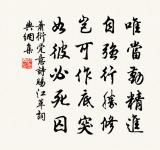 唯當勤精進
自強行勝修
豈可作底突
如彼必死囚
蕭衍覺意詩賜江革詞
典網集